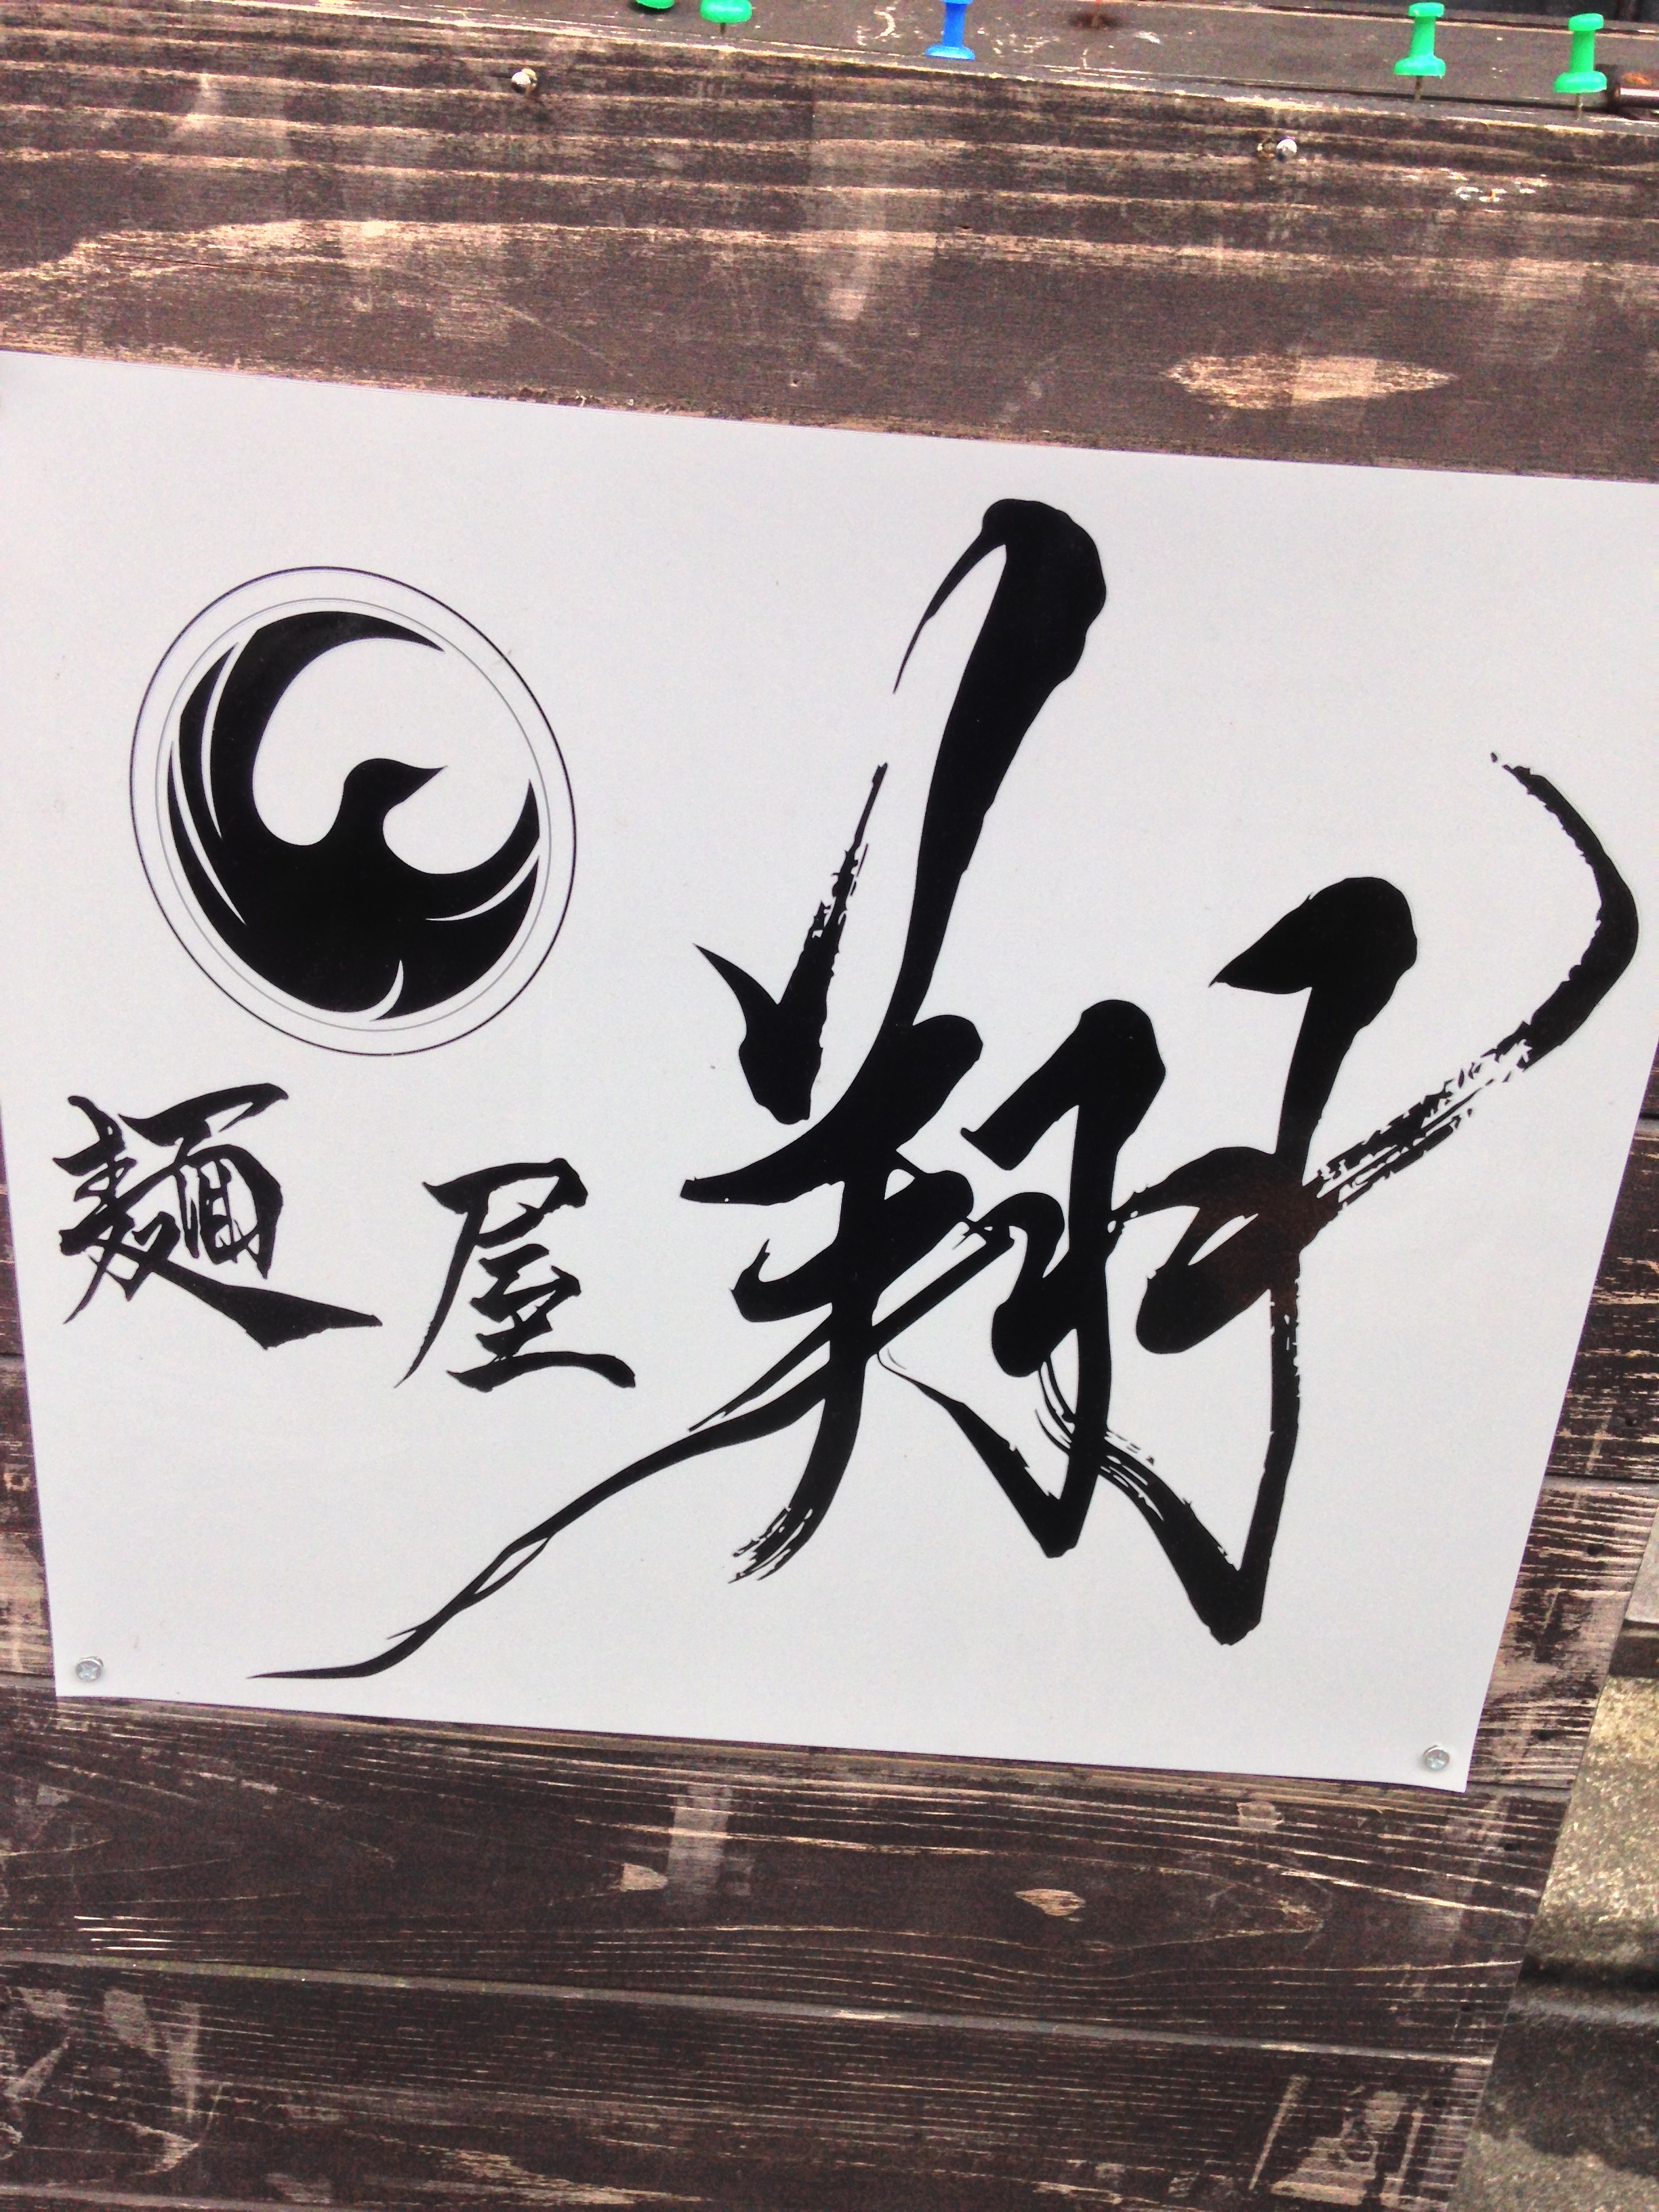 麺屋翔